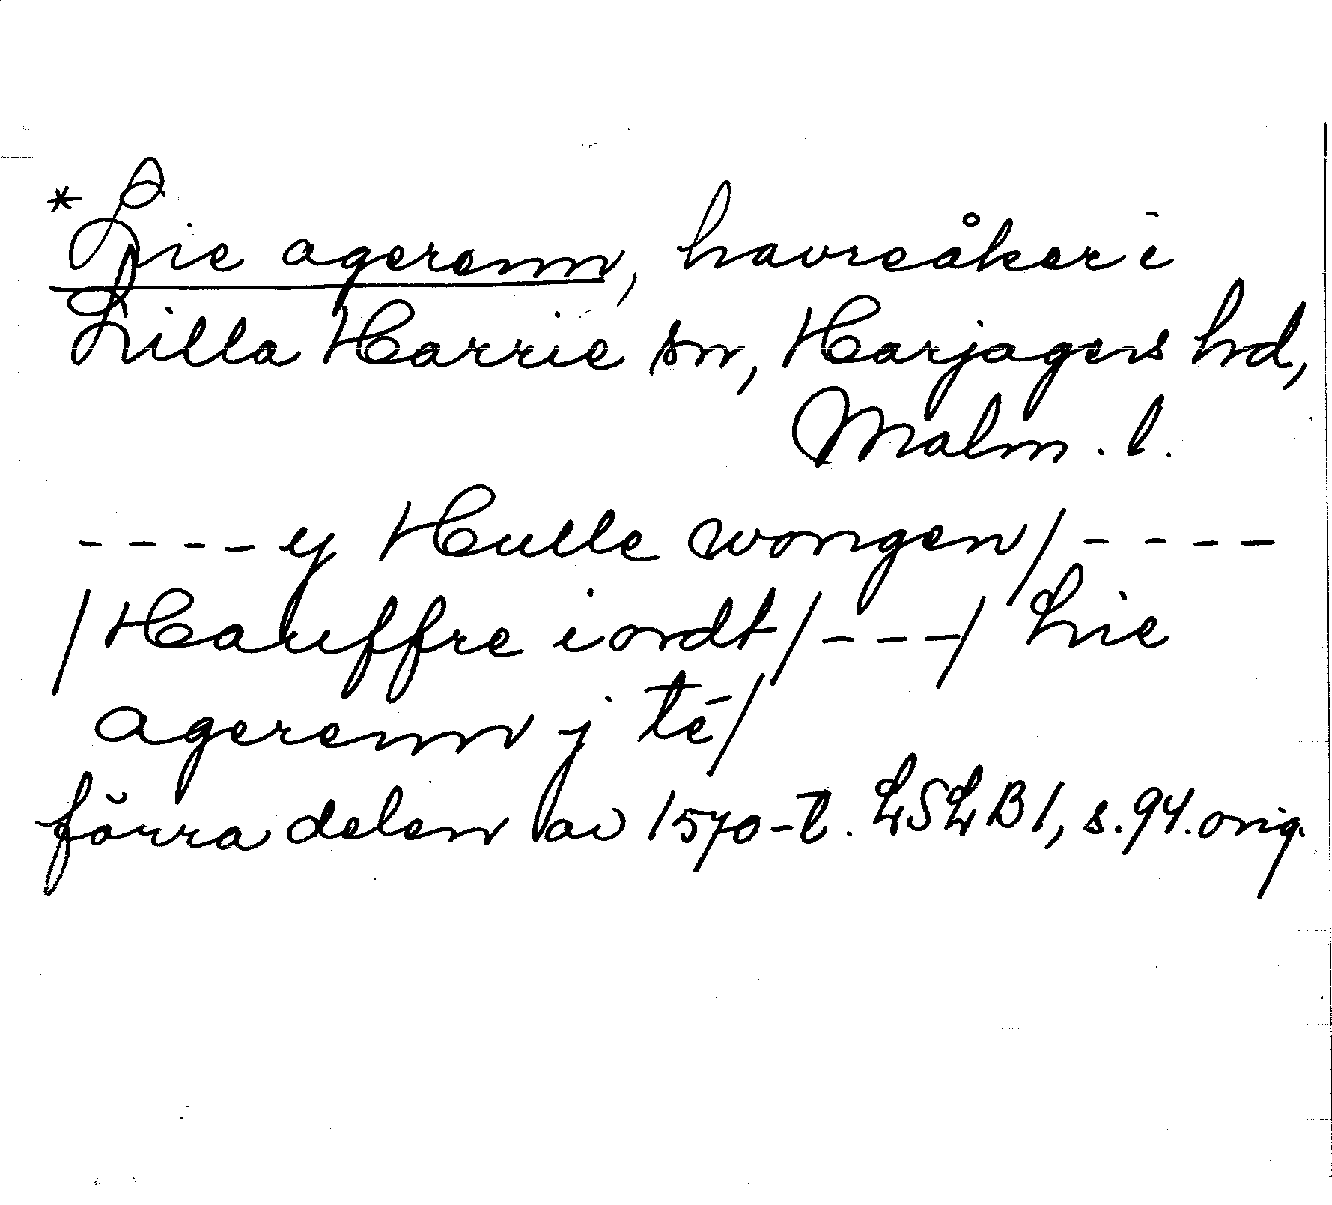 *Lie agerenn, havreåker i
Lilla Harrie sn, Harjagers hd,
Malm. l.
----y Hulle wongen/----
/Hauffre iordt/---/ Lie
agerenn j té/
förra delen av 1570-t. LSLB1, s. 94. orig.